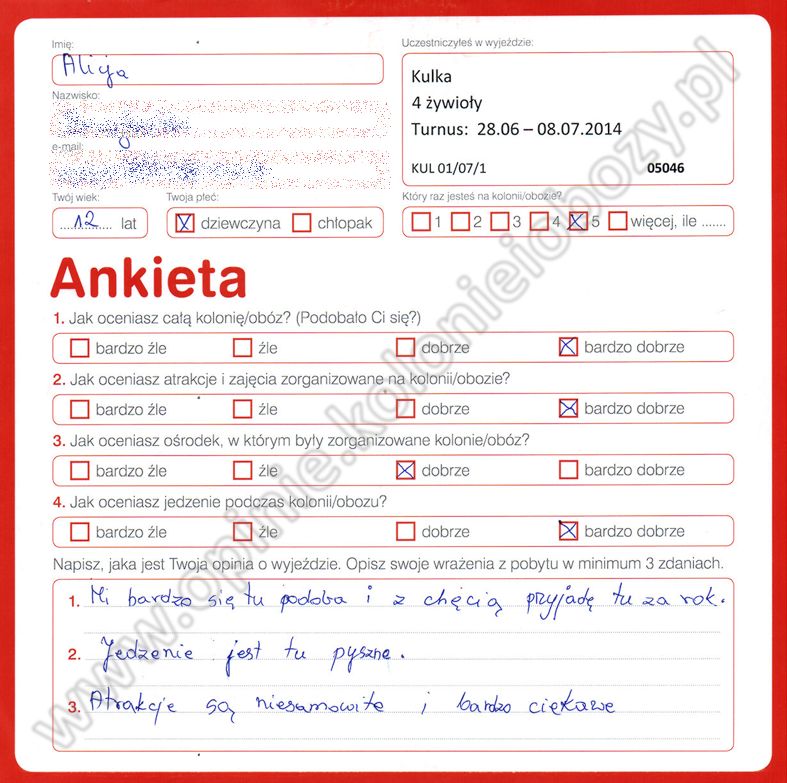 Imię:
Uczestniczyłeś w wyjeździe:
Alicja
Kulka
4 żywioły
Turnus: 28.06 – 08.07.2014
KUL 01/07/1 05046
Nazwisko:
e-mail:
Twój wiek: Twoja płeć: Który raz jesteś na kolonii/obozie?
12 lat dziewczyna chłopak 1 2 3 4 5 więcej, ile .......
Ankieta
1. Jak oceniasz całą kolonię/obóz? (Podobało Ci się?)
bardzo źle źle dobrze bardzo dobrze
2. Jak oceniasz atrakcje i zajęcia zorganizowane na kolonii/obozie?
bardzo źle źle dobrze bardzo dobrze
3. Jak oceniasz ośrodek, w którym były zorganizowane kolonie/obóz?
bardzo źle źle dobrze bardzo dobrze
4. Jak oceniasz jedzenie podczas kolonii/obozu?
bardzo źle źle dobrze bardzo dobrze
Napisz, jaka jest Twoja opinia o wyjeździe. Opisz swoje wrażenia z pobytu w minimum 3 zdaniach.
1. Mi bardzo się tu podoba i z chęcią przyjadę tu za rok.
2. Jedzenie jest tu pyszne.
3. Atrakcje są niesamowite i bardzo ciekawe
www.opinie.kolonieiobozy.pl